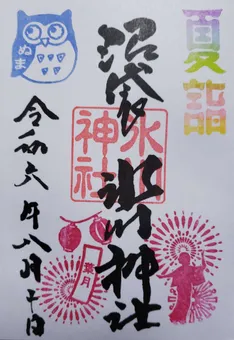 夏詣
沼袋氷川神社
氷川神社
令和六年八月十日
ぬま
葉月